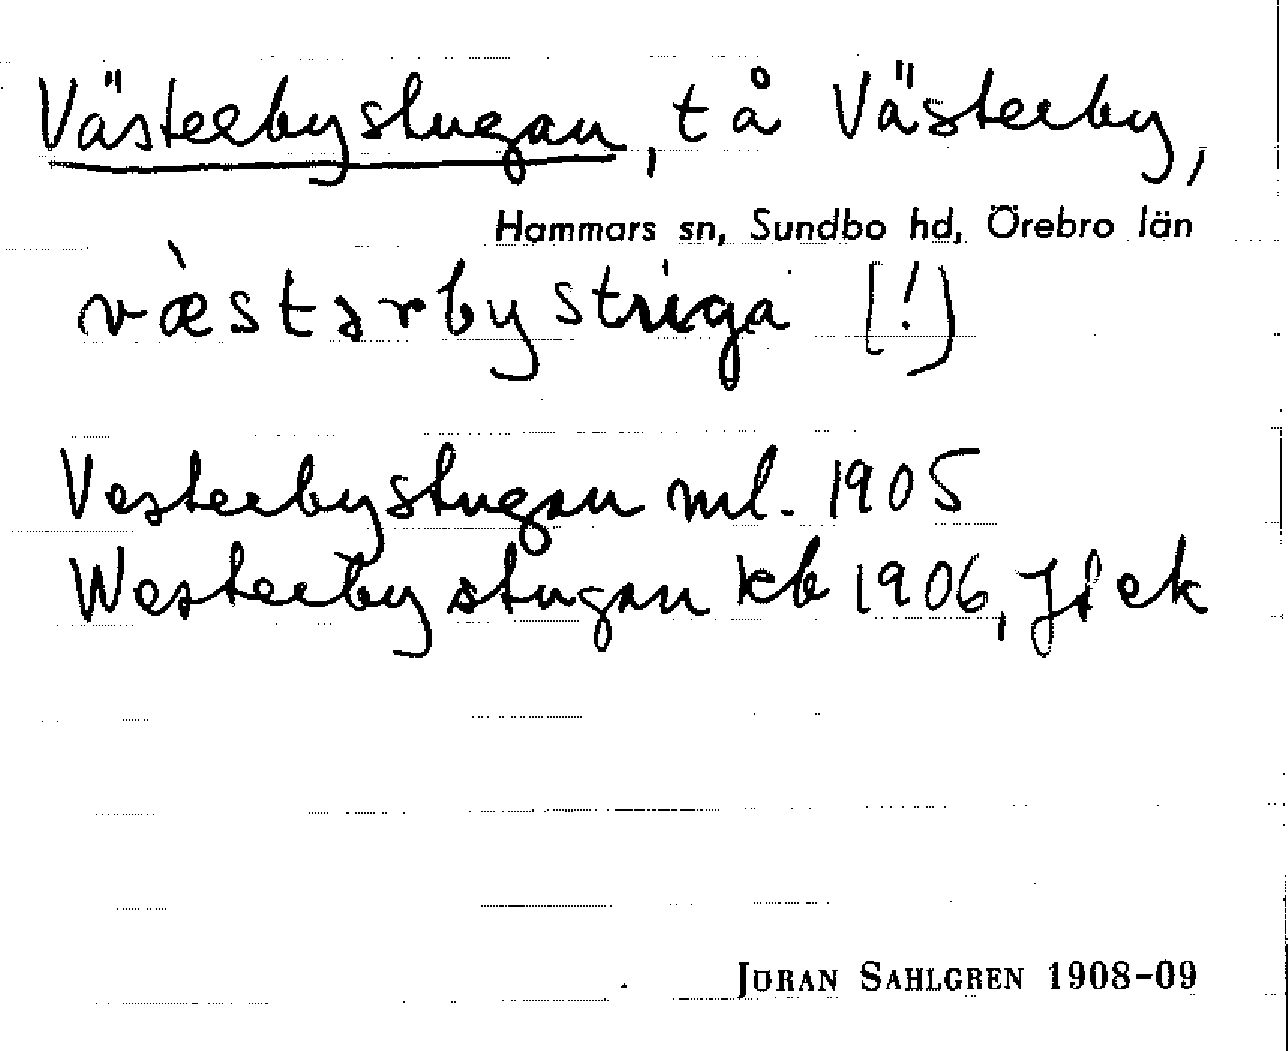 Västerbystugan, t å Västerby,
Hammars sn, Sundbo hd, Örebro län
v̀æstərbystriga [!]
Vesterbystugan ml. 1905
Westerbystugan kb 1906, Jfek
JÖRAN SAHLGREN 1908-09